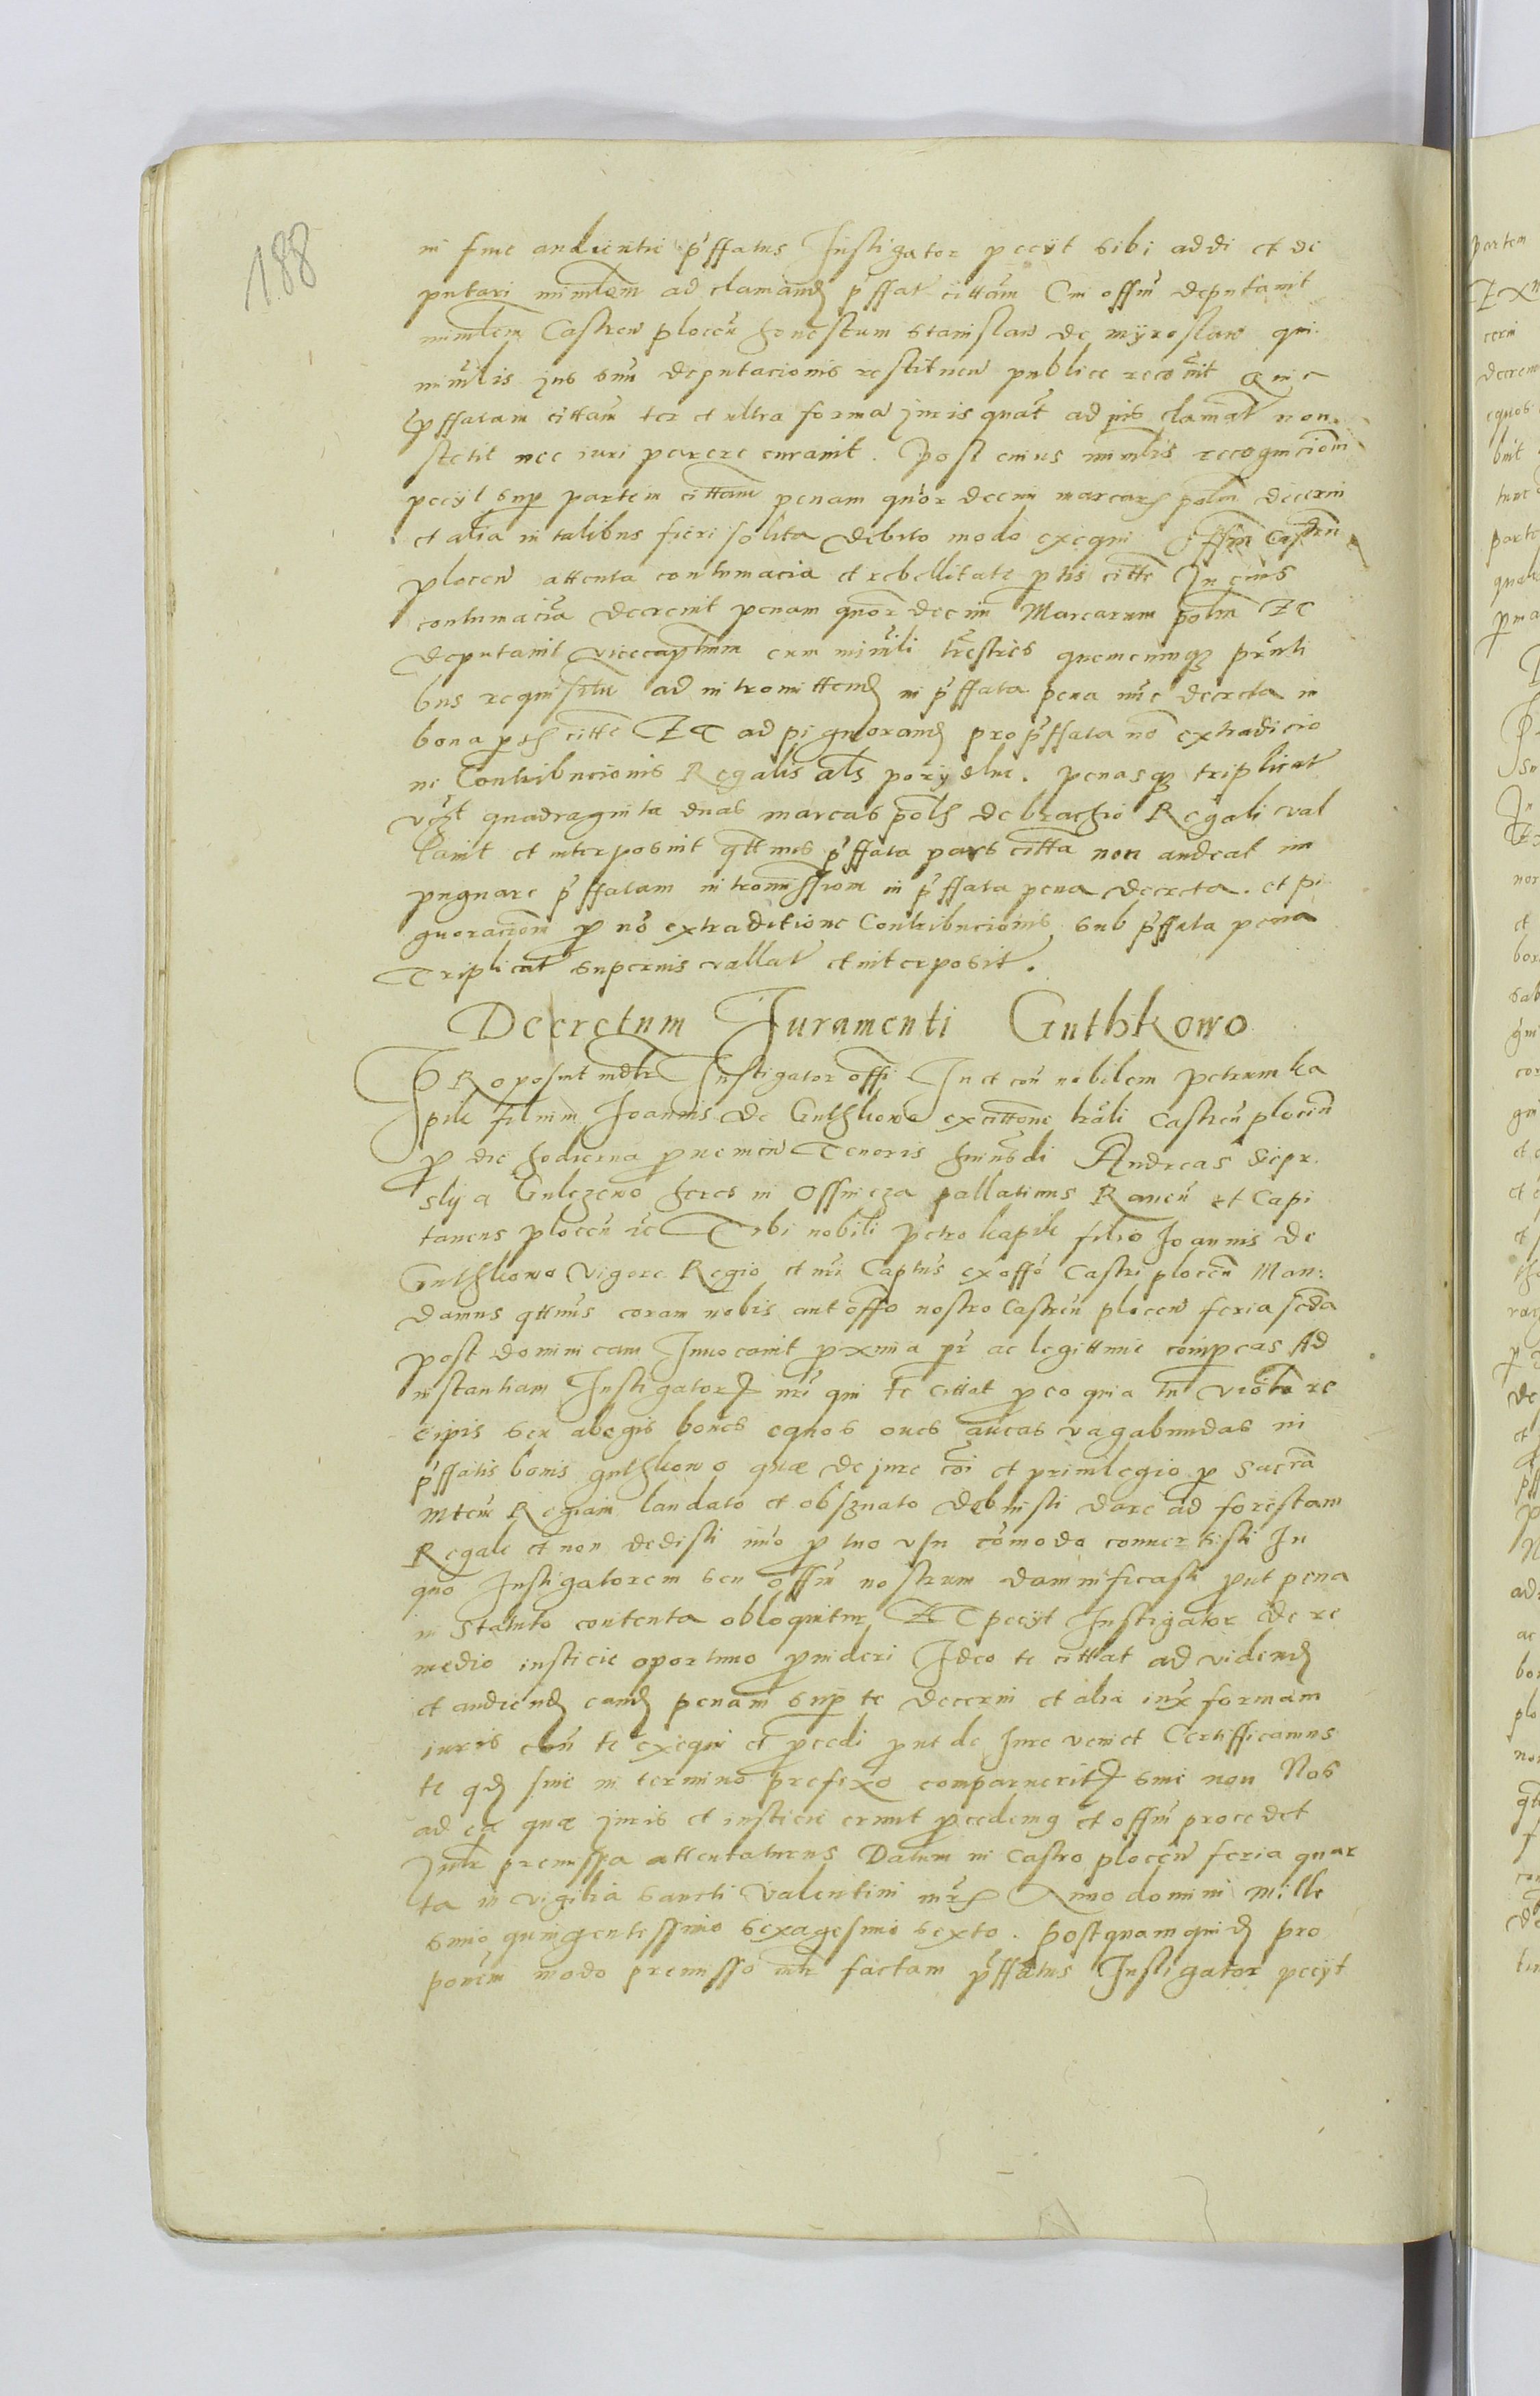 188
in fine audientie p̄ffatus Instigator peciit sibi addi et de
putari minrlem ad clamand p̄ffat cittām Cui offm̄ deputauit
minrlem Castren plocen̄ honestum Stanislaw de myroslaw qui
minrlis jus suū deputacionis restituen publice recōuit Quia
p̄ffatam cittām ter et ultra forma juris quāt ad jus clamat non
stetit nec iuri parere curauit. Post cuius minrlis recognicionī
peciit sup partem cittām penam quor decim marcarū polm̄ decerni
et alia in talibus fieri solita debito modo exequi Offm̄ Castren
plocen attenta contumacia et rebellitate ptis citte In eius
contumaciā decreuit penam quor decim Marcarum polm̄ Et
deputauit vicecaptnum cum minrli trēstres quemcumq prn̄ti
bus requisitū ad intromittend in p̄ffata pena nūc decreta in
bona ptis citte Et ad pignorand pro p̄ffata nō extradicio
ne Contribucionis Regalis als porydlne. penasq triplicat
vꝫt quadraginta duas marcas pols de brachio Regali val
lauit et interposuit qttnus p̄ffata pars citta non audeat im
pugnare p̄ffatam intromissiom in p̄ffata pena decreta. et pi
gnoracionī p nō extraditione Contribucionis sub p̄ffata pena
Triplicat supernis vallat et interposit.
Decretum Juramenti Guthkowo
PRoposuit mdtr Instigator offi In et con nobilem petrum ka
pile filium Joannis de Guthkowo ex cittone trāli Castren plocen̄
p die hodierna pueniēn Tenoris huiusdi Andreas Siepr
skij a Gulczewo heres in Offnicza pallatinus Rauen̄ et Capi
taneus plocen̄ rē Tibi nobili petro kapile filio Joannis de
Guthkowo vigore Regio et nri Captus ex offo Castri plocen̄ Man:
damus qttnus coram nobis aut offo nostro Castren plocen feria scda
post dominicam Inuocauit pxima pr̄ ac legittime compeas Ad
instantiam Instigatoris nri qui te cittat p eo quia tu viōta re
cipis seu abegis boues equos oues aucas vagabundas in
p̄ffatis bonis guthkowo quæ de jure cōi et priuilegio p Sacrā
Mtem Regiam laudato et obsruato debuisti dare ad forestam
Regale et non dedisti imo p tuo vsu cōmodo conuertisti In
quo Instigatorem seu offm̄ nostrum damnificasti put pena
in Statuto contenta obloquitur Et peciit Instigator de re
medio iusticie oportuno puideri Ideo te cittat ad vidend
et audiend eand penam sup te decerni et alia iux formam
iuris con te exequi et pcedi put de jure veniet Certifficamus
te qd siue in termino prefixo comparueris siue non Nos
ad ea quæ juris et iusticie erunt pcedemꝰ et offm̄ procedet
Intr premissa attentaturus Datum in Castro plocen̄ feria quar
ta in vigilia Sancti Valentini mrs Anno domini Mille
simo quingentessimo sexagesimo sexto. Post quam quid pro
ponem modo premisso intr factam p̄ffatus Instigator peciit